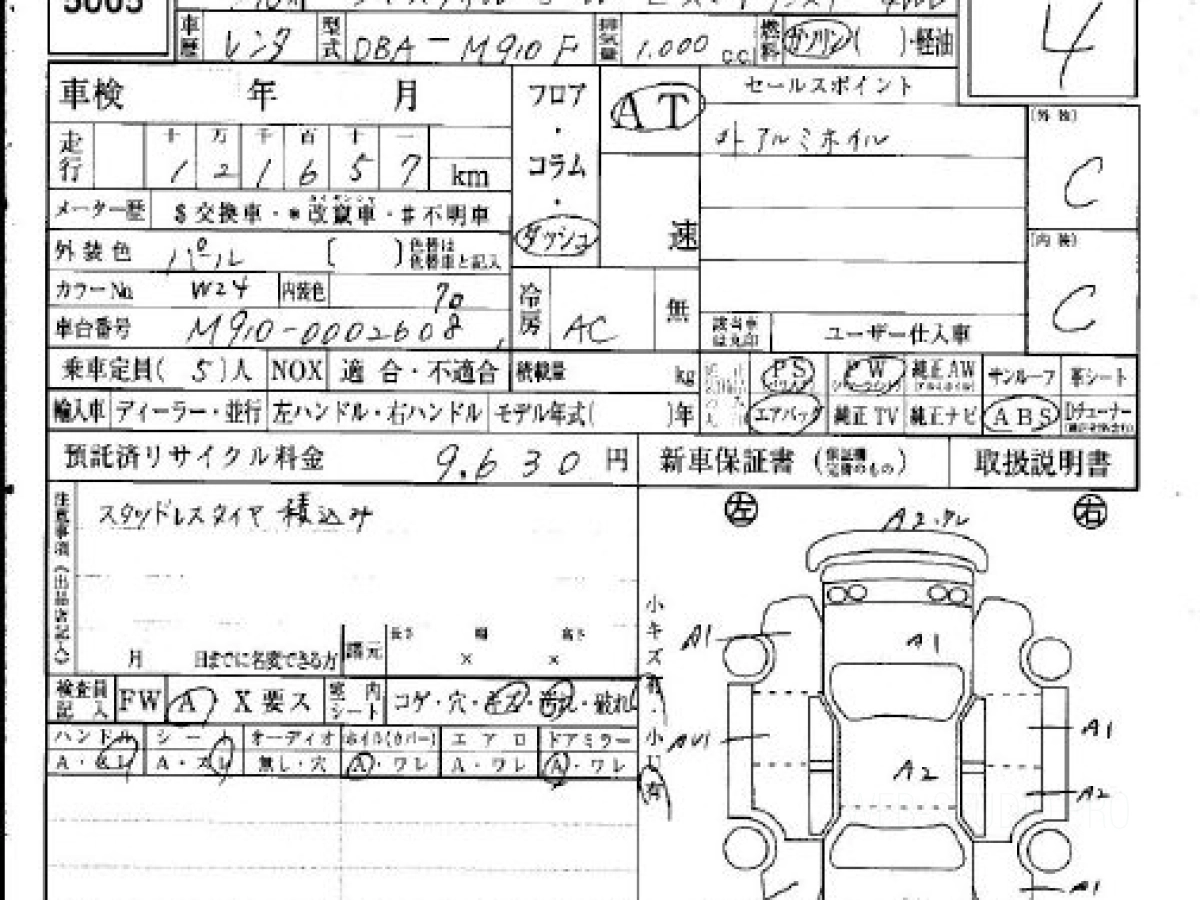 5005
車歴 レンタ 型式 DBA-M910F 排気量 1.000 c.c. 燃料 ガソリン( )・軽油
4
車検 年 月
フロア・コラム・ダッシュ
AT
速
セールスポイント
社外アルミホイル
走行 十 万 千 百 十 一
1 2 1 6 5 7 km
メーター歴 $交換車・*改竄車・#不明車
外装色 パール [ ] 色替は色替車と記入
カラーNo. W24 内装色 70
車台番号 M910-0002608
冷房 AC 無
[外装] C
[内装] C
該当車は丸印 ユーザー仕入車
乗車定員( 5 )人 NOX 適合・不適合 積載量 kg
PS PW 純正AW サンルーフ 革シート
輸入車 ディーラー・並行 左ハンドル・右ハンドル モデル年式( )年
エアバッグ 純正TV 純正ナビ ABS Dチューナー
預託済リサイクル料金 9.630 円 新車保証書 取扱説明書
注意事項(出品店記入)
スタッドレスタイヤ 積込み
月 日までに名変できる方 諸元 長さ × 幅 × 高さ
検査員記入 FW A X要ス 室内シート コゲ・穴・キズ・汚れ・破れ
ハンドル シート オーディオ ホイル(カバー) エアロ ドアミラー
A・スレ A・スレ 無し・穴 A・ワレ A・ワレ A・ワレ
小キズ有・小U有
左 右
A2・ワレ
A1
A1
AU1
A1
A2
A2
A1